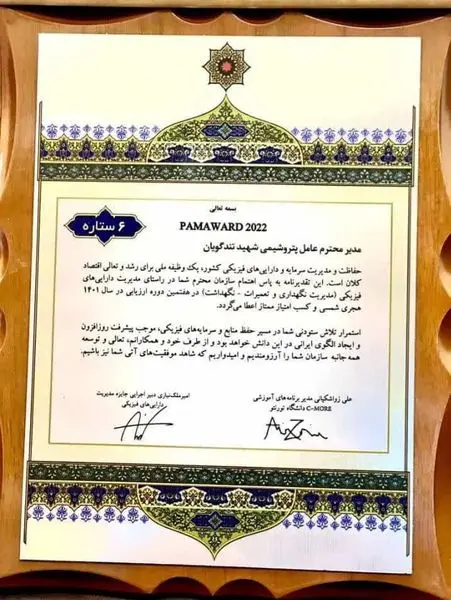 بسمه تعالی
۶ ستاره
PAMAWARD 2022
مدیر محترم عامل پتروشیمی شهید تندگویان
حفاظت و مدیریت سرمایه و دارایی‌های فیزیکی کشور، یک وظیفه ملی برای رشد و تعالی اقتصاد
کلان است. این تقدیرنامه به پاس اهتمام سازمان محترم شما در راستای مدیریت دارایی‌های
فیزیکی (مدیریت نگهداری و تعمیرات - نگهداشت) در هفتمین دوره ارزیابی در سال ۱۴۰۱
هجری شمسی و کسب امتیاز ممتاز اعطا می‌گردد.
استمرار تلاش ستودنی شما در مسیر حفظ منابع و سرمایه‌های فیزیکی، موجب پیشرفت روزافزون
و ایجاد الگوی ایرانی در این دانش خواهد بود و از طرف خود و همکارانم، تعالی و توسعه
همه‌جانبه سازمان شما را آرزومندیم و امیدواریم که شاهد موفقیت‌های آتی شما نیز باشیم.
علی زواشکیانی مدیر برنامه‌های آموزشی
C-MORE دانشگاه تورنتو
امیرملک‌نیازی دبیر اجرایی جایزه مدیریت
دارایی‌های فیزیکی